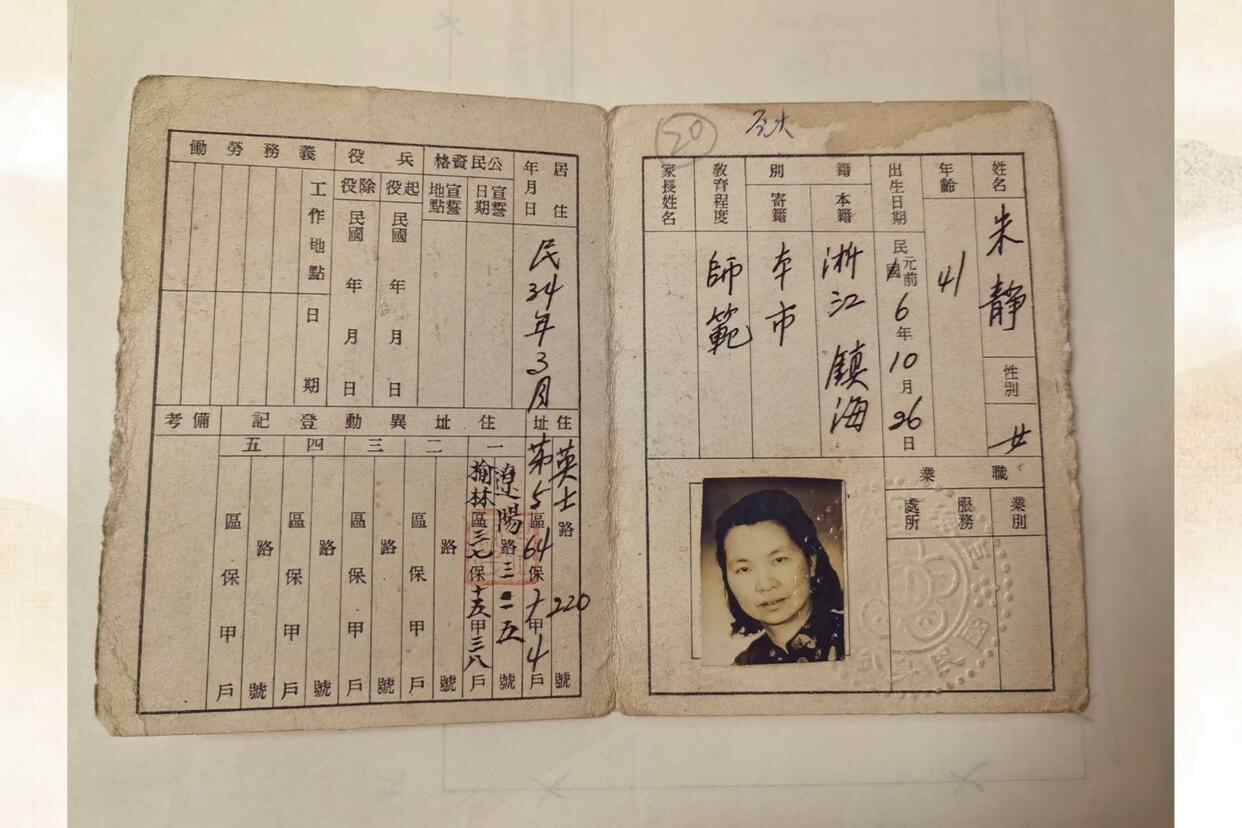 20
姓名
朱靜
性別
女
年齡
41
出生日期
民國元前6年10月26日
籍別
本籍
浙江鎮海
寄籍
本市
教育程度
師範
家長姓名
職業
業別
服務處所
居住年月日
民34年3月
公民資格
宣誓日期
宣誓地點
兵役
起役
民國年月日
除役
民國年月日
義務勞働
工作地點
日期
住址
英士路220號
第5區64保十甲4戶
住址異動登記
一
遼陽路三一五號
榆林區三七保十五甲三八戶
二
路號
區保甲戶
三
路號
區保甲戶
四
路號
區保甲戶
五
路號
區保甲戶
備考